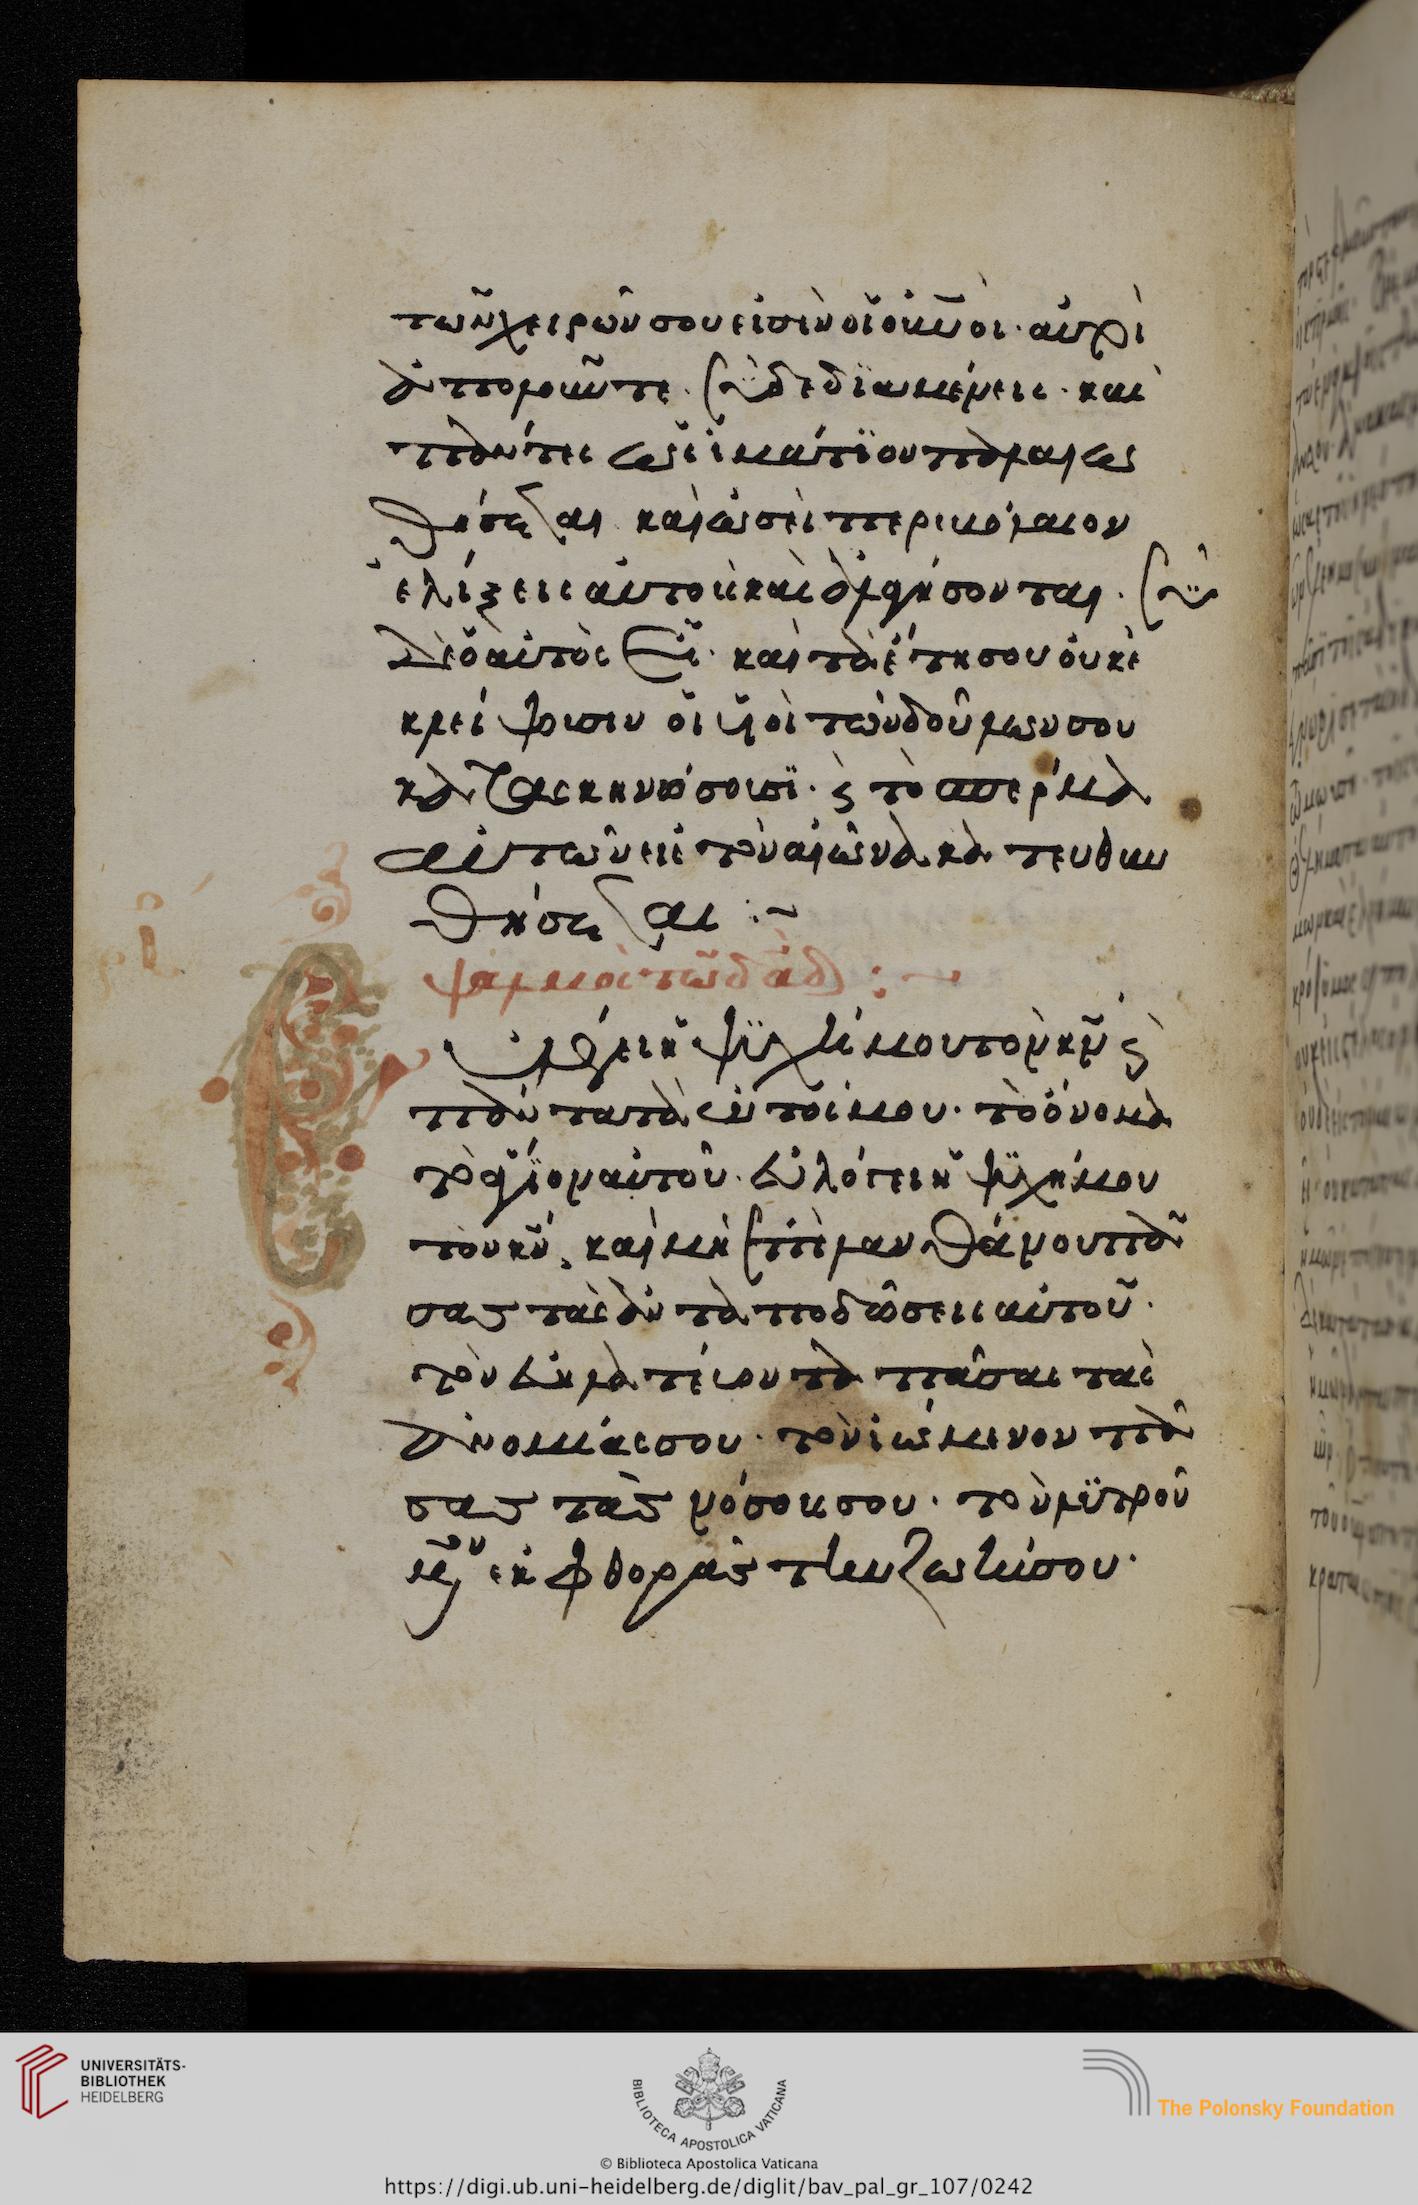 τῶν χειρῶν σου εἰσὶν οἱ οὐνοὶ· αὐτοὶ
ἀπολοῦνται· σὺ δὲ διαμένεις· καὶ
πάντες ὡς ἱμάτιον παλαιω
θήσονται καὶ ὡσεὶ περιβόλαιον
ἑλίξεις αὐτοὺς καὶ ἀλλαγήσονται· σὺ
δὲ ὁ αὐτὸς εἶ· καὶ τὰ ἔτη σου οὐκ ἐ
κλείψουσιν οἱ υἱοὶ τῶν δούλων σου
κατασκηνώσουσι· ϛ τὸ σπέρμα
αὐτῶν εἰς τὸν αἰῶνα κατευθυν
θήσεται :~
ψαλμὸς τῶ δαδ :~
ρβ
Εὐλόγει ἡ ψυχή μου τὸν κν ϛ
πάντα τὰ ἐντός μου· τὸ ὄνομα
τὸ ἅγιον αὐτοῦ· εὐλόγει ἡ ψυχή μου
τὸν κν, καὶ μὴ ἐπιλανθάνου πά
σας τὰς ἀνταποδώσεις αὐτοῦ·
τὸν εὐιλατεύοντα πάσαις ταῖς
ἀνομίαις σου· τὸν ἰώμενον πά
σας τὰς νόσους σου· τὸν λυτρού
μενον ἐκ φθορᾶς τὴν ζωήν σου·
UNIVERSITÄTS-
BIBLIOTHEK
HEIDELBERG
BIBLIOTECA APOSTOLICA VATICANA
The Polonsky Foundation
© Biblioteca Apostolica Vaticana
https://digi.ub.uni-heidelberg.de/diglit/bav_pal_gr_107/0242